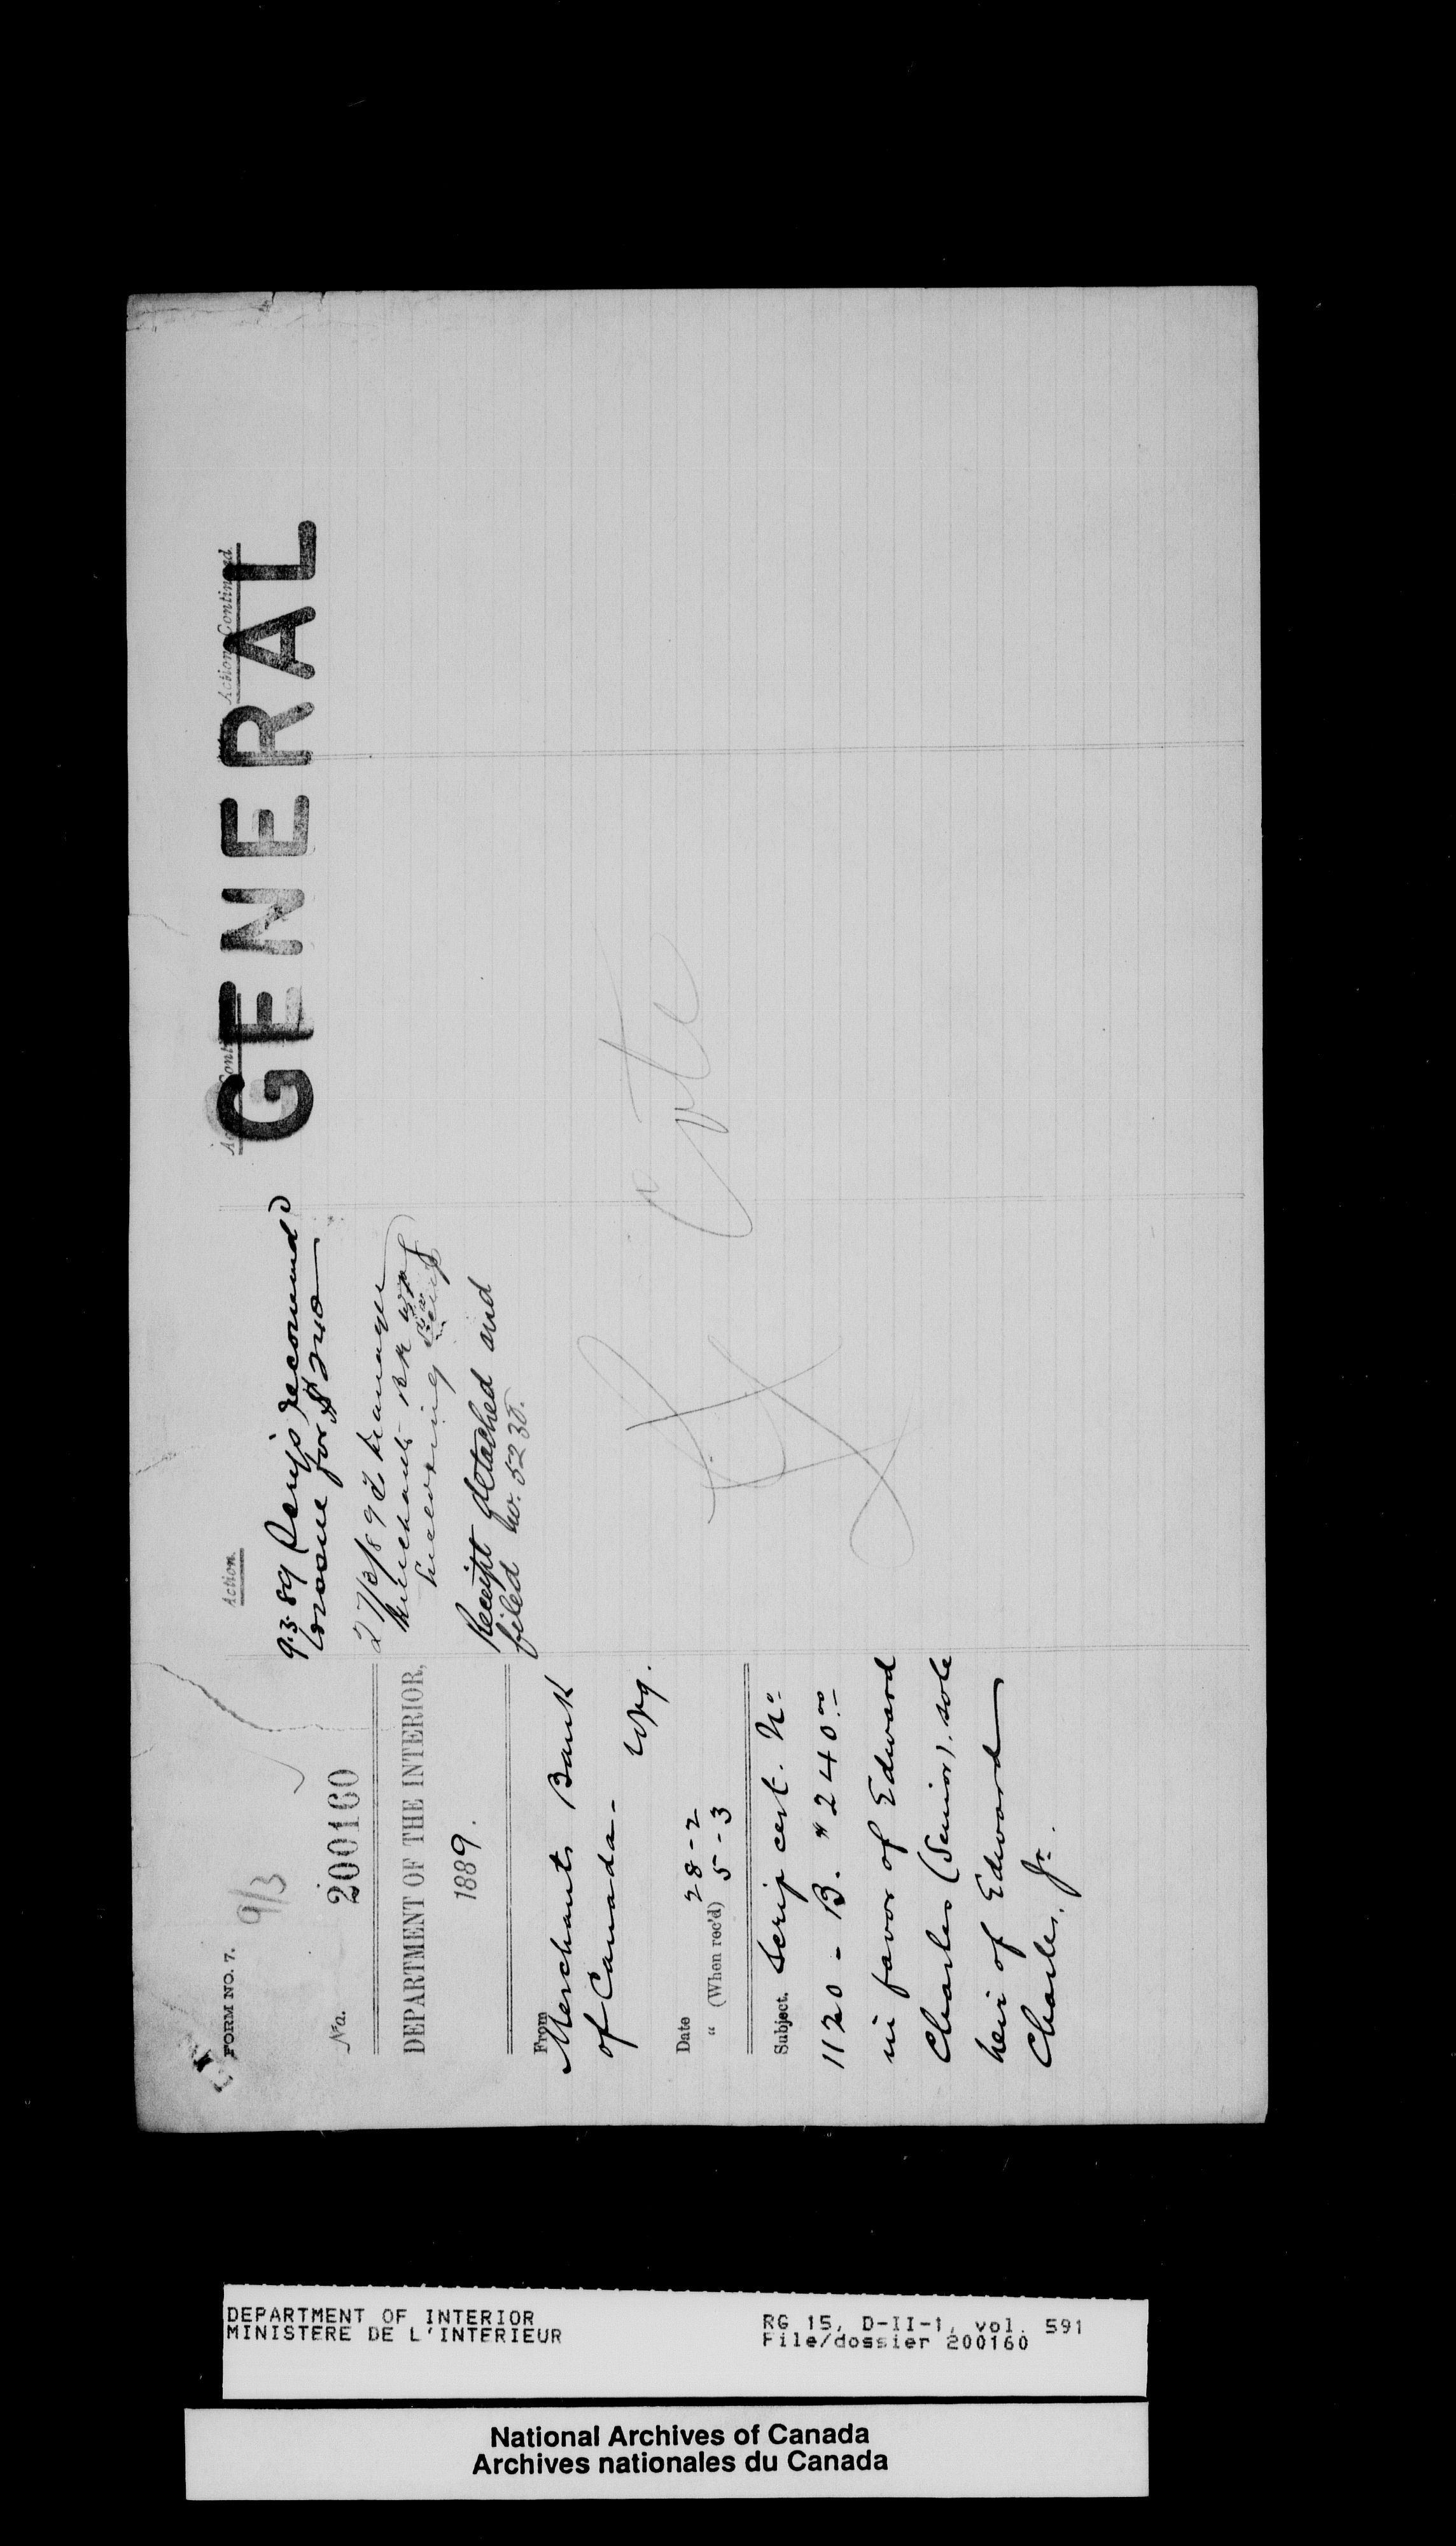 FORM NO. 7.
9/3
No. 200160
DEPARTMENT OF THE INTERIOR,
1889.
From
Merchants Bank
of Canada-
Wpg.
Date 28-2
" (When rec'd) 5-3
Subject. Scrip cert. No.
1120 - B. $240.00
in favor of Edward
Charles (Senior), sole
heir of Edward
Charles, Jr.
Action.
9.3.89 Scrip recommend
to issue for $240
27/3/89 To Manager
Merchants Bk Wpg
Receipt detached and
filed no. 5230.
Action Continued
Action Continued
GENERAL
DEPARTMENT OF INTERIOR
MINISTERE DE L'INTERIEUR
RG 15, D-II-1, vol. 591
File/dossier 200160
National Archives of Canada
Archives nationales du Canada